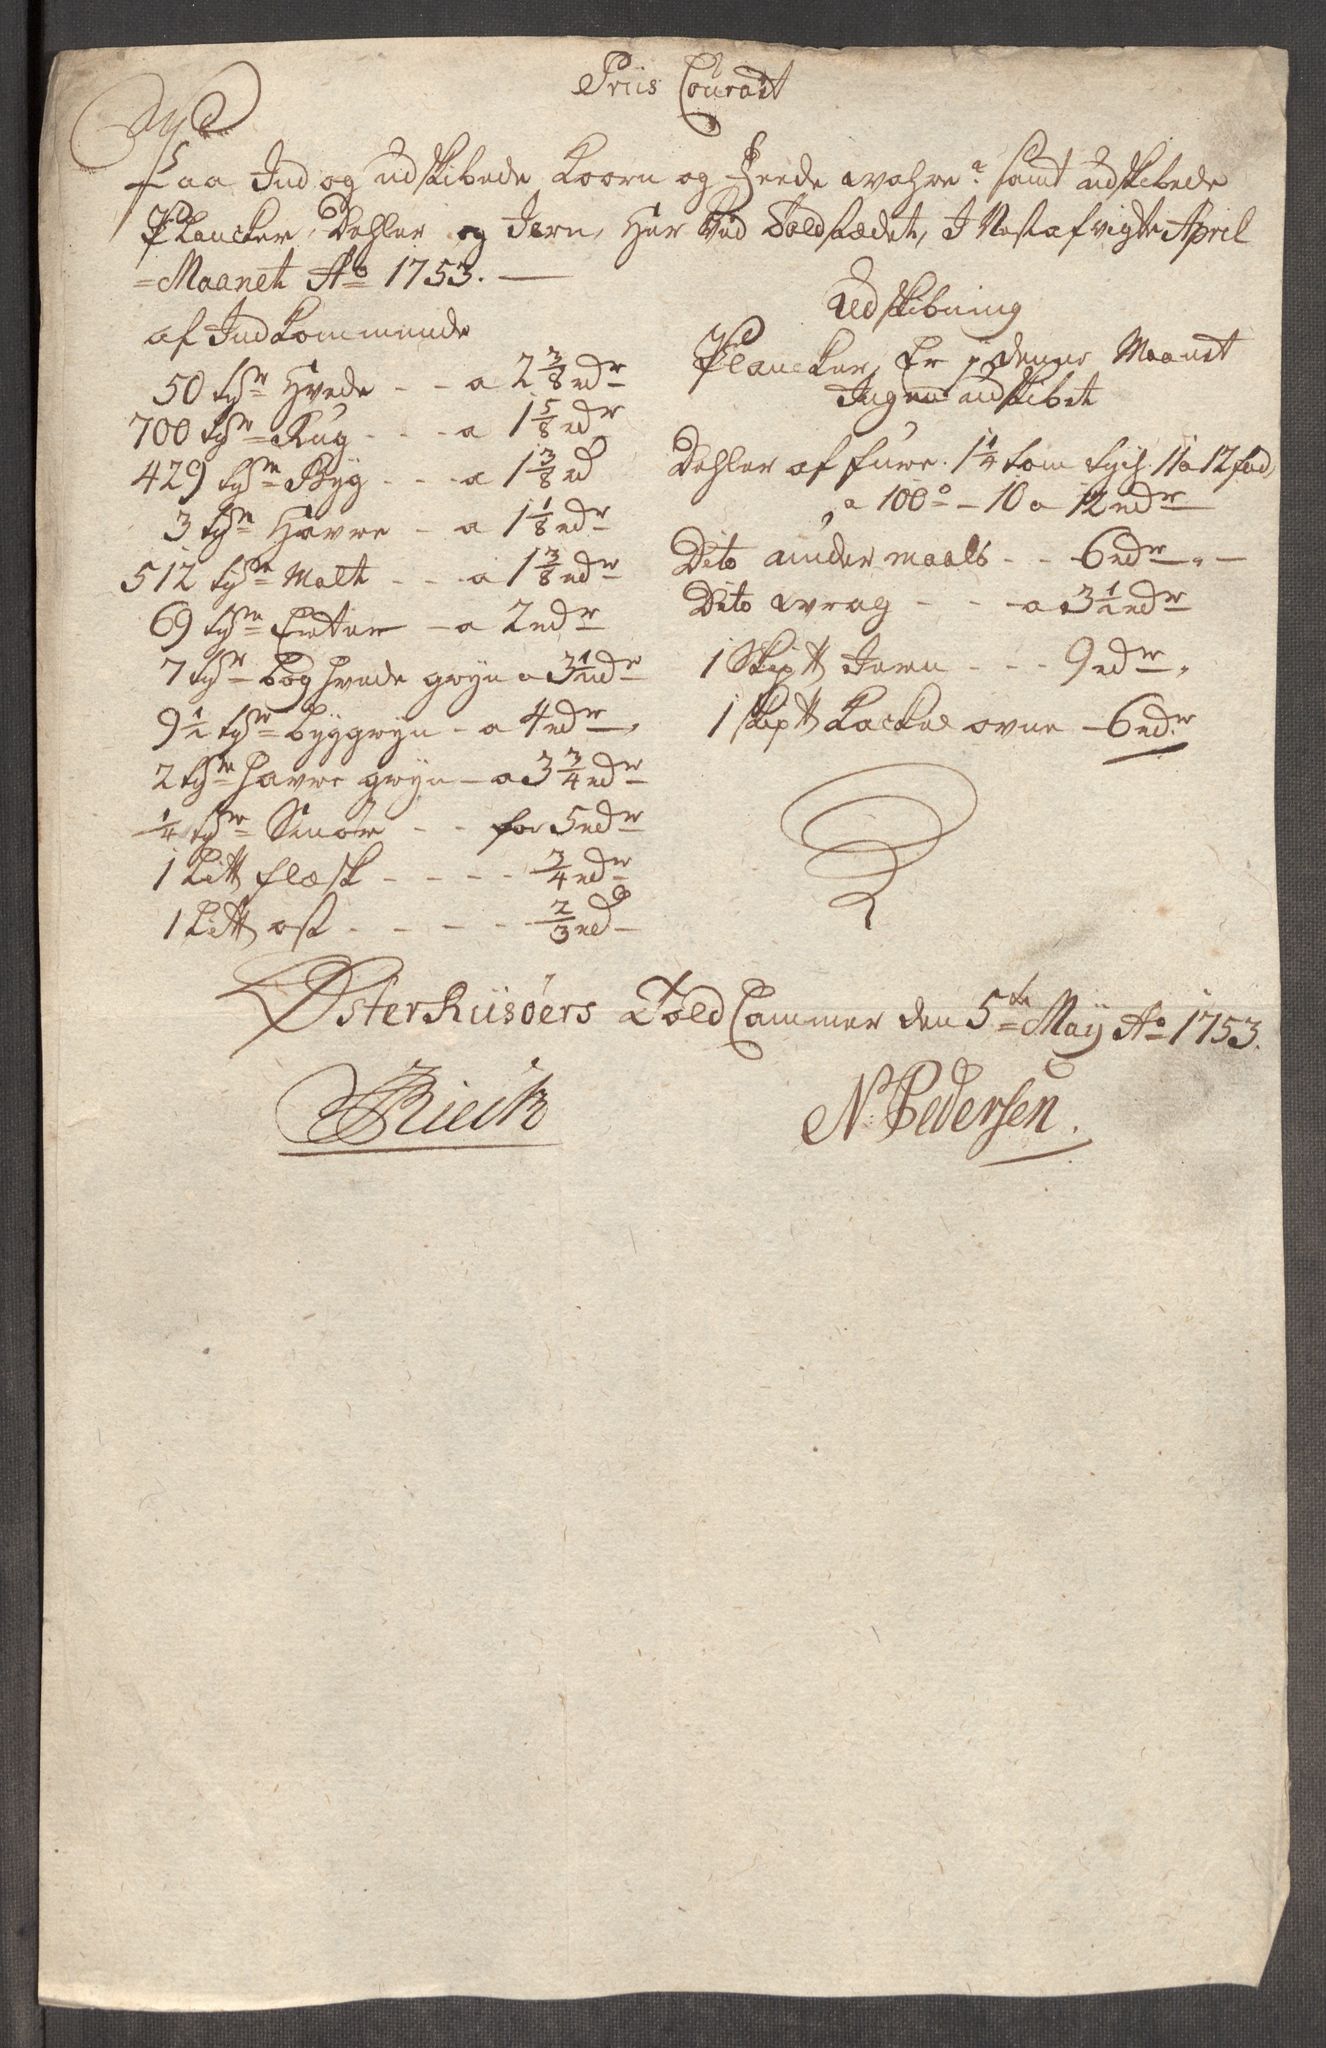 Priis Courant
Paa Ind og udskibede Koorn og Feede wahre samt udskibede
Plancker, Dehler og Jern, Her Ved Toldstædet, I Nestafvigte April
Maanet Ao 1753.
af Indkommende
50 tdr Hvede - - a 2 3/8 rdr
700 tdr Rug - - - a 1 5/8 rdr
429 tdr Byg - - - a 1 3/8 rd
3 tdr Havre - a 1 1/8 rdr
512 tdr Malt - - - a 1 3/8 rdr
69 tdr Erter - a 2 rdr
7 tdr Boghvede gryn a 3 1/2 rdr
9 1/2 tdr byggryn - a 4 rdr
2 tdr havre gryn - a 3 3/4 rdr
1/4 tdr Smør - - for 5 rdr
1 Litt flæsk - - - - 3/4 rdr
1 Litt ost - - - - 2/3 rd
Udskibning
Plancker, Er j denne Maanet
Ingen udskibet
Dehler af furre 1 1/4 tom tych 11 a 12 fod,
a 100 - 10 a 12 rdr
Dito under maals - - 6 rdr
Dito wrag - - - a 3 1/2 rdr
1 Skiptt Jern - - - 9 rdr
1 Skiptt Kackel ovne - 6 rdr
Østerrüsøers Told Cammer den 5te Maÿ Ao 1753.
N. Pedersen.